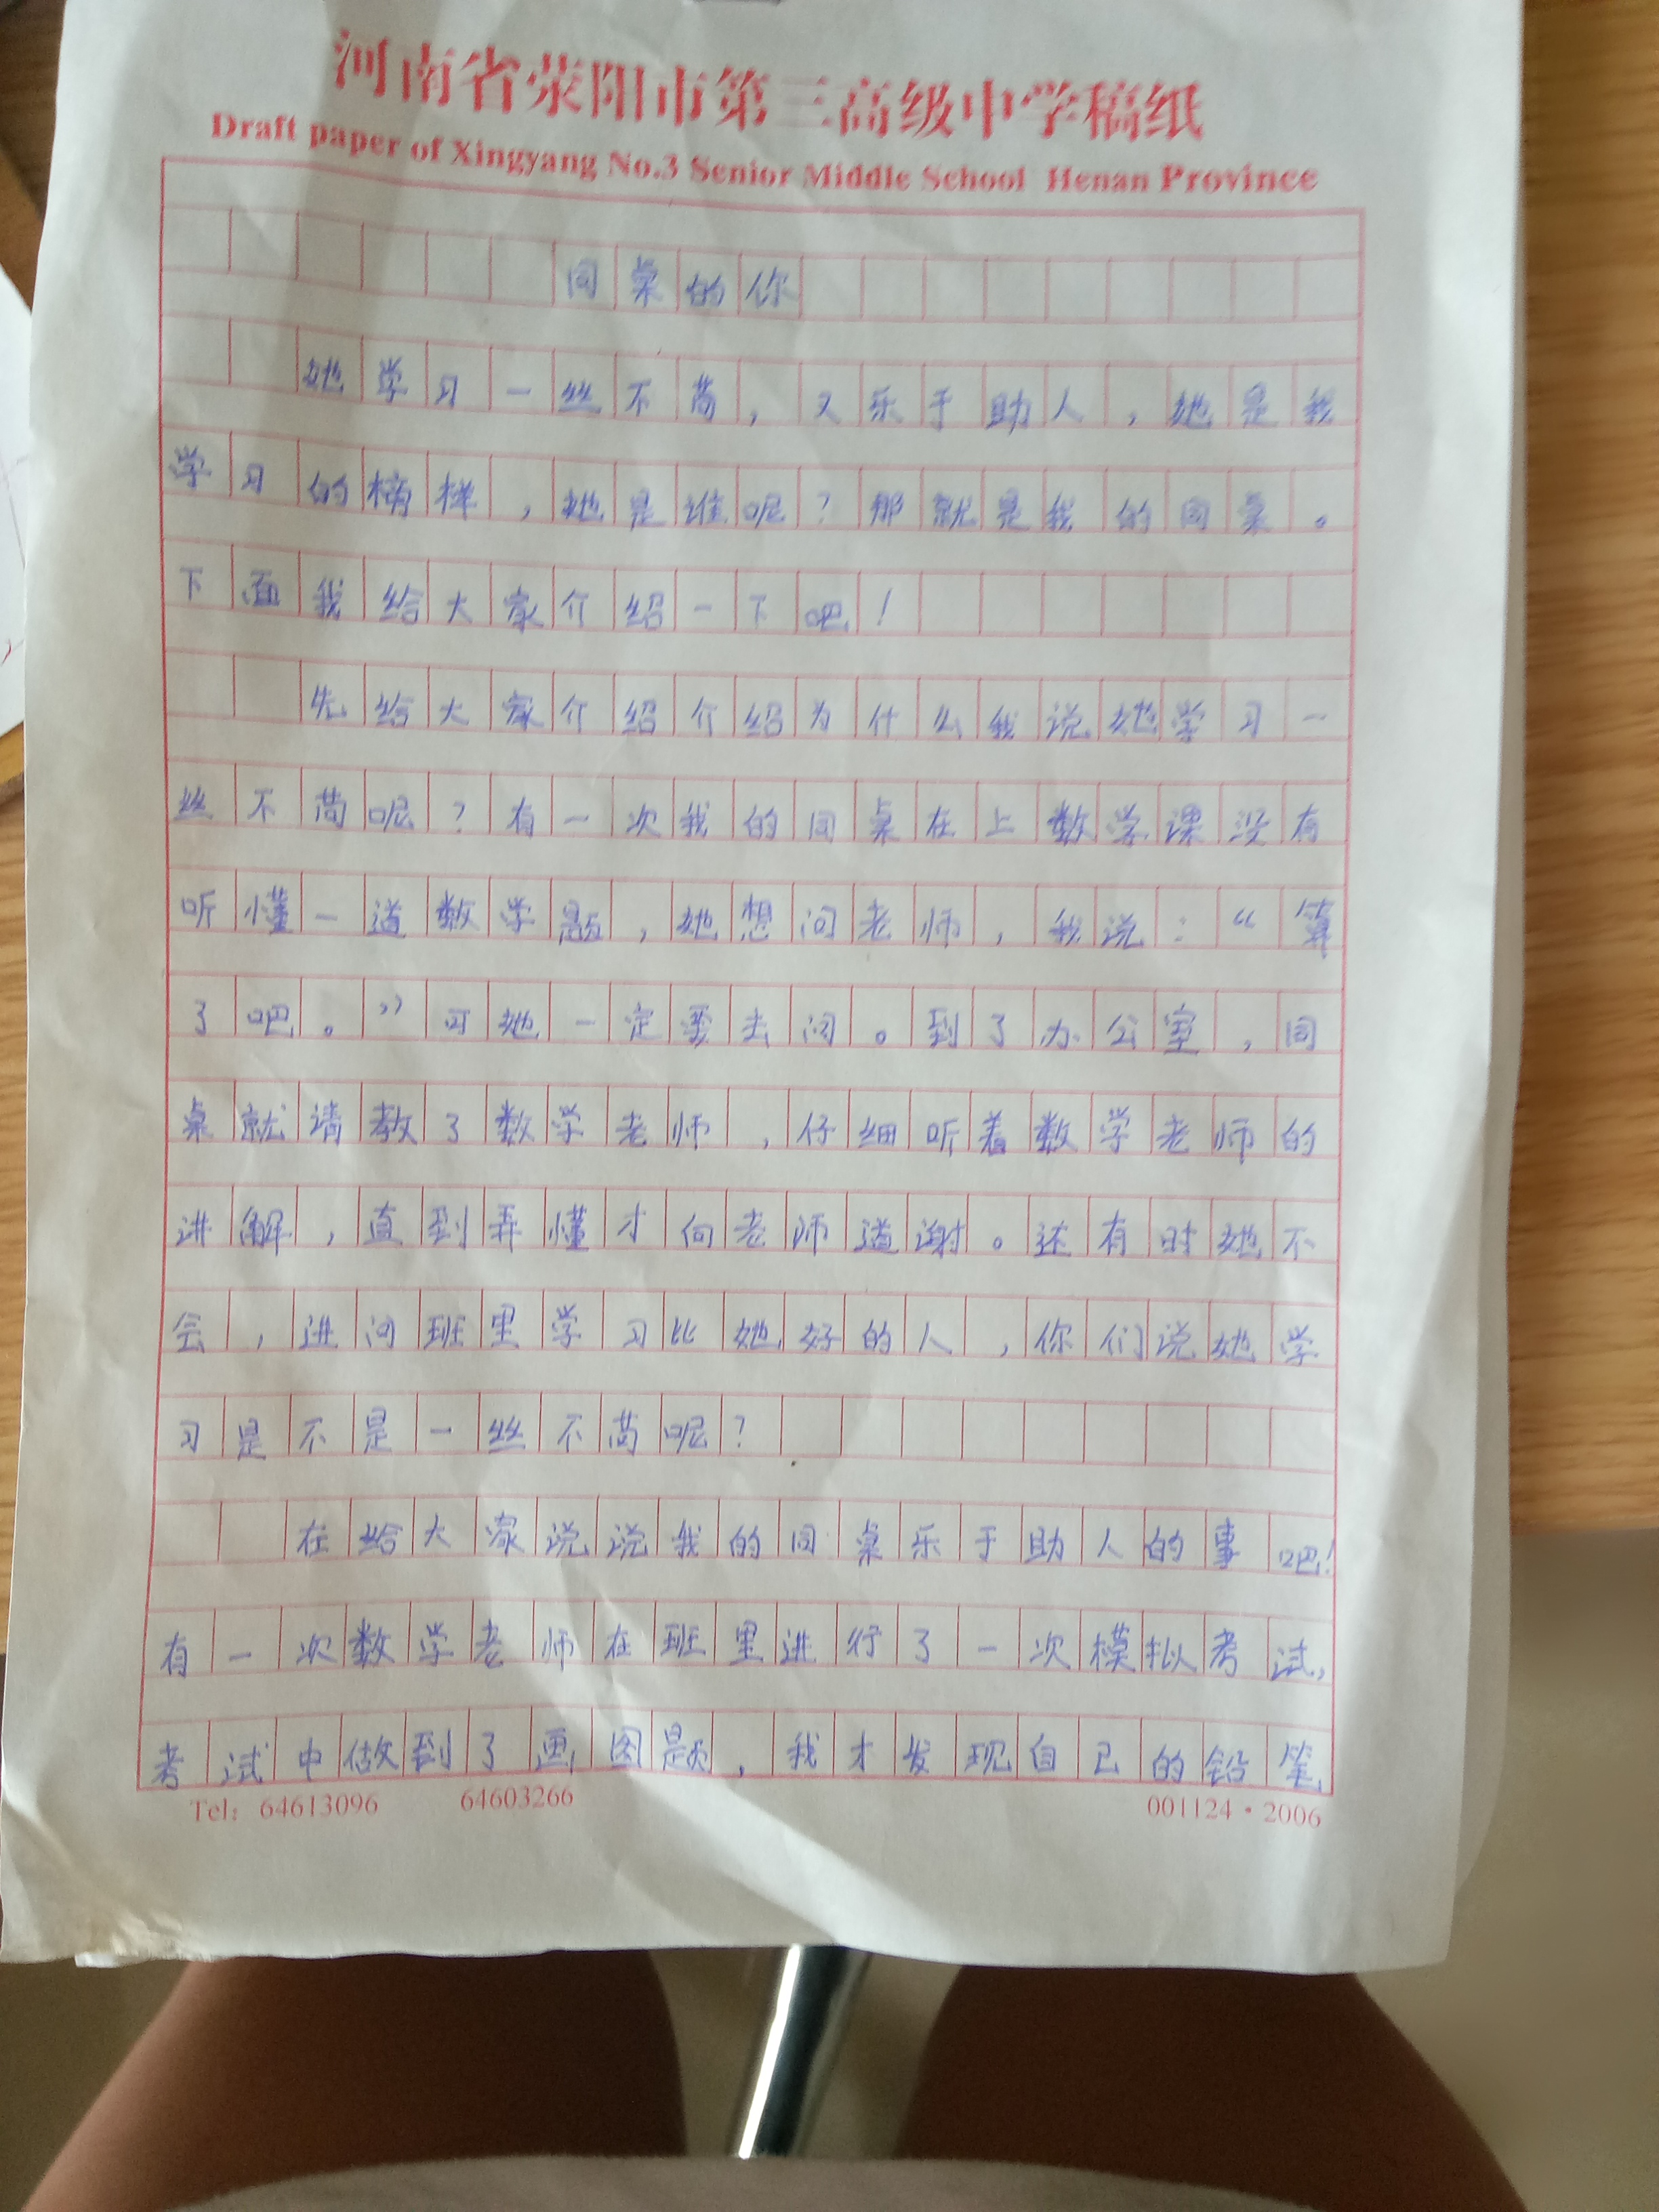 河南省荥阳市第三高级中学稿纸
Draft paper of Xingyang No.3 Senior Middle School Henan Province
同桌的你
她学习一丝不苟，又乐于助人，她是我
学习的榜样，她是谁呢？那就是我的同桌。
下面我给大家介绍一下吧！
先给大家介绍介绍为什么我说她学习一
丝不苟呢？有一次我的同桌在上数学课没有
听懂一道数学题，她想问老师，我说：“算
了吧。”可她一定要去问。到了办公室，同
桌就请教了数学老师，仔细听着数学老师的
讲解，直到弄懂才向老师道谢。还有时她不
会，进问班里学习比她好的人，你们说她学
习是不是一丝不苟呢？
在给大家说说我的同桌乐于助人的事吧！
有一次数学老师在班里进行了一次模拟考试，
考试中做到了画图题，我才发现自己的铅笔
Tel: 64613096 64603266 001124·2006